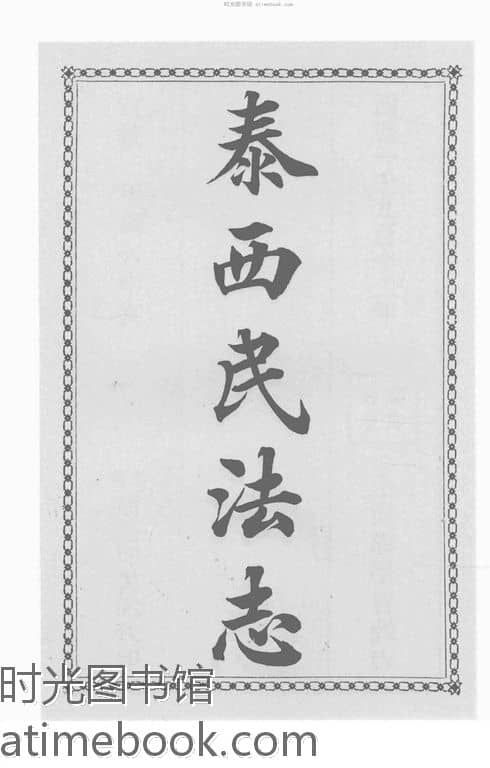 时光图书馆 atimebook.com
泰西民法志
时光图书馆
atimebook.com